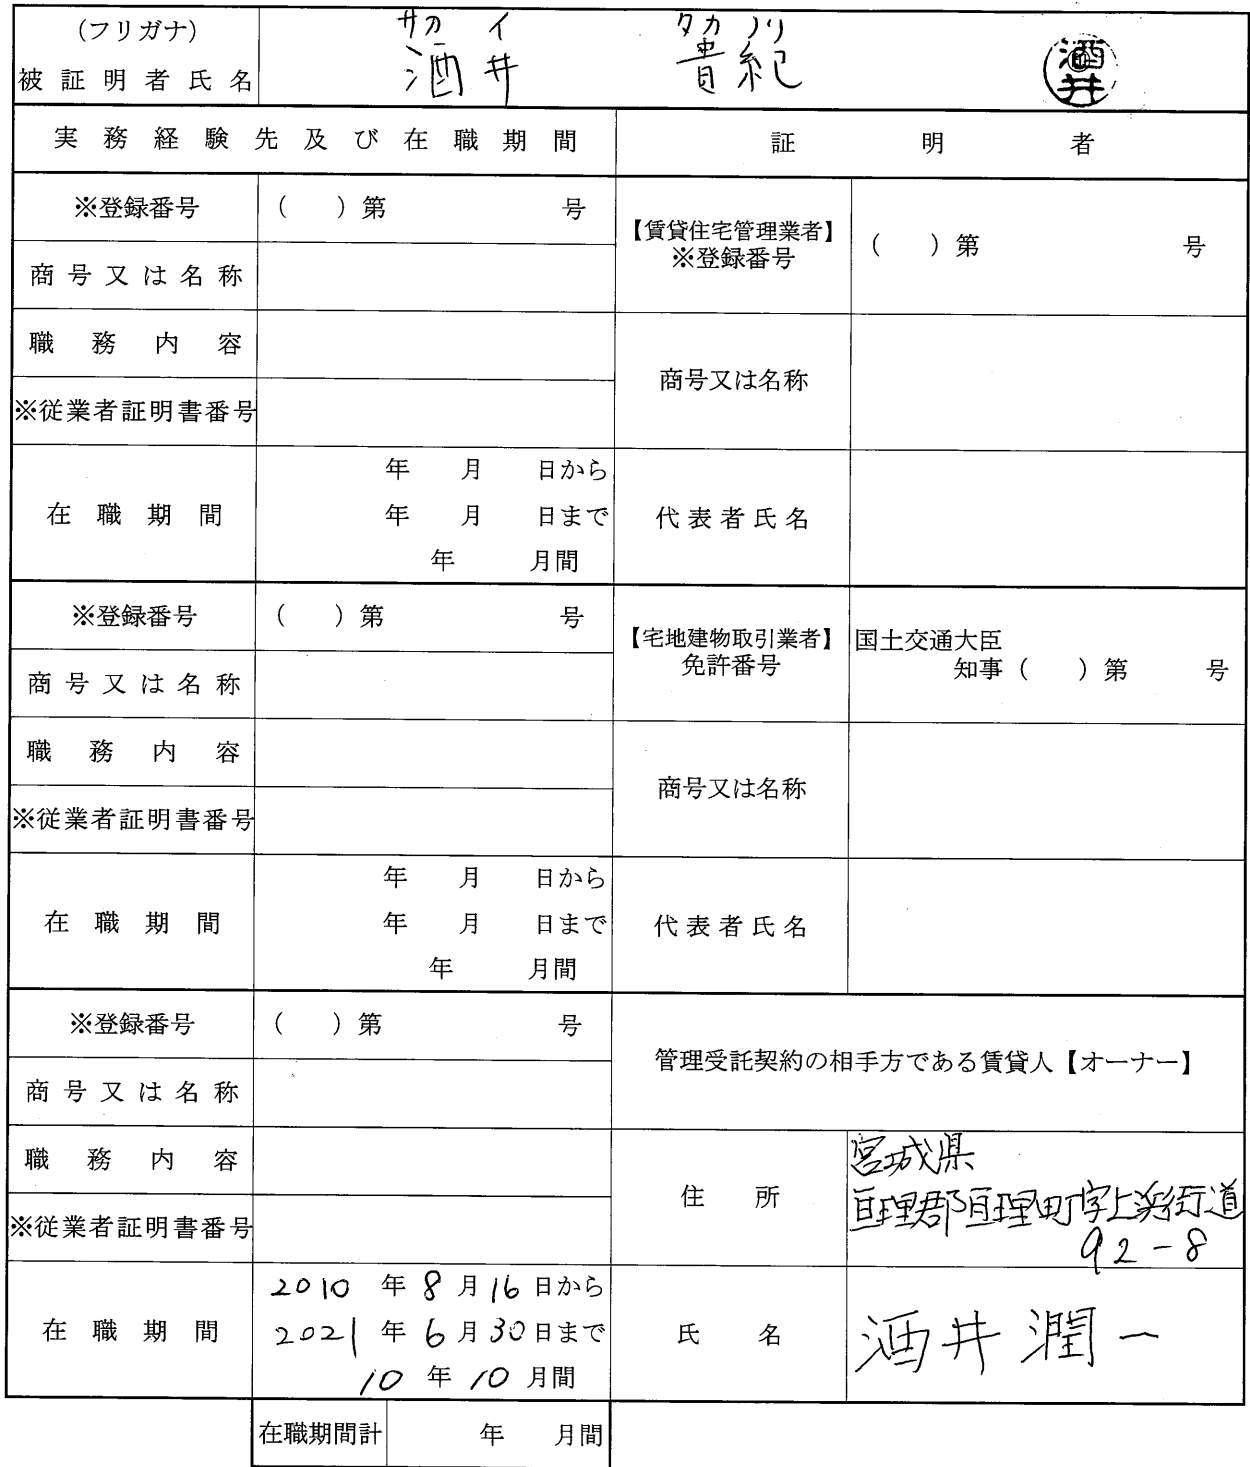 (フリガナ) サカ イ タカ ノリ
被証明者氏名 酒井 貴紀 酒井
実務経験先及び在職期間 証明者
※登録番号 ( )第 号
商号又は名称
職務内容
※従業者証明書番号
在職期間
年 月 日から
年 月 日まで
年 月間
【賃貸住宅管理業者】
※登録番号 ( )第 号
商号又は名称
代表者氏名
※登録番号 ( )第 号
商号又は名称
職務内容
※従業者証明書番号
在職期間
年 月 日から
年 月 日まで
年 月間
【宅地建物取引業者】
免許番号
国土交通大臣
知事( )第 号
商号又は名称
代表者氏名
※登録番号 ( )第 号
商号又は名称
職務内容
※従業者証明書番号
在職期間
2010 年 8 月 16 日から
2021 年 6 月 30 日まで
10 年 10 月間
管理受託契約の相手方である賃貸人【オーナー】
住所
宮城県
亘理郡亘理町字上浜街道
92-8
氏名 酒井潤一
在職期間計 年 月間